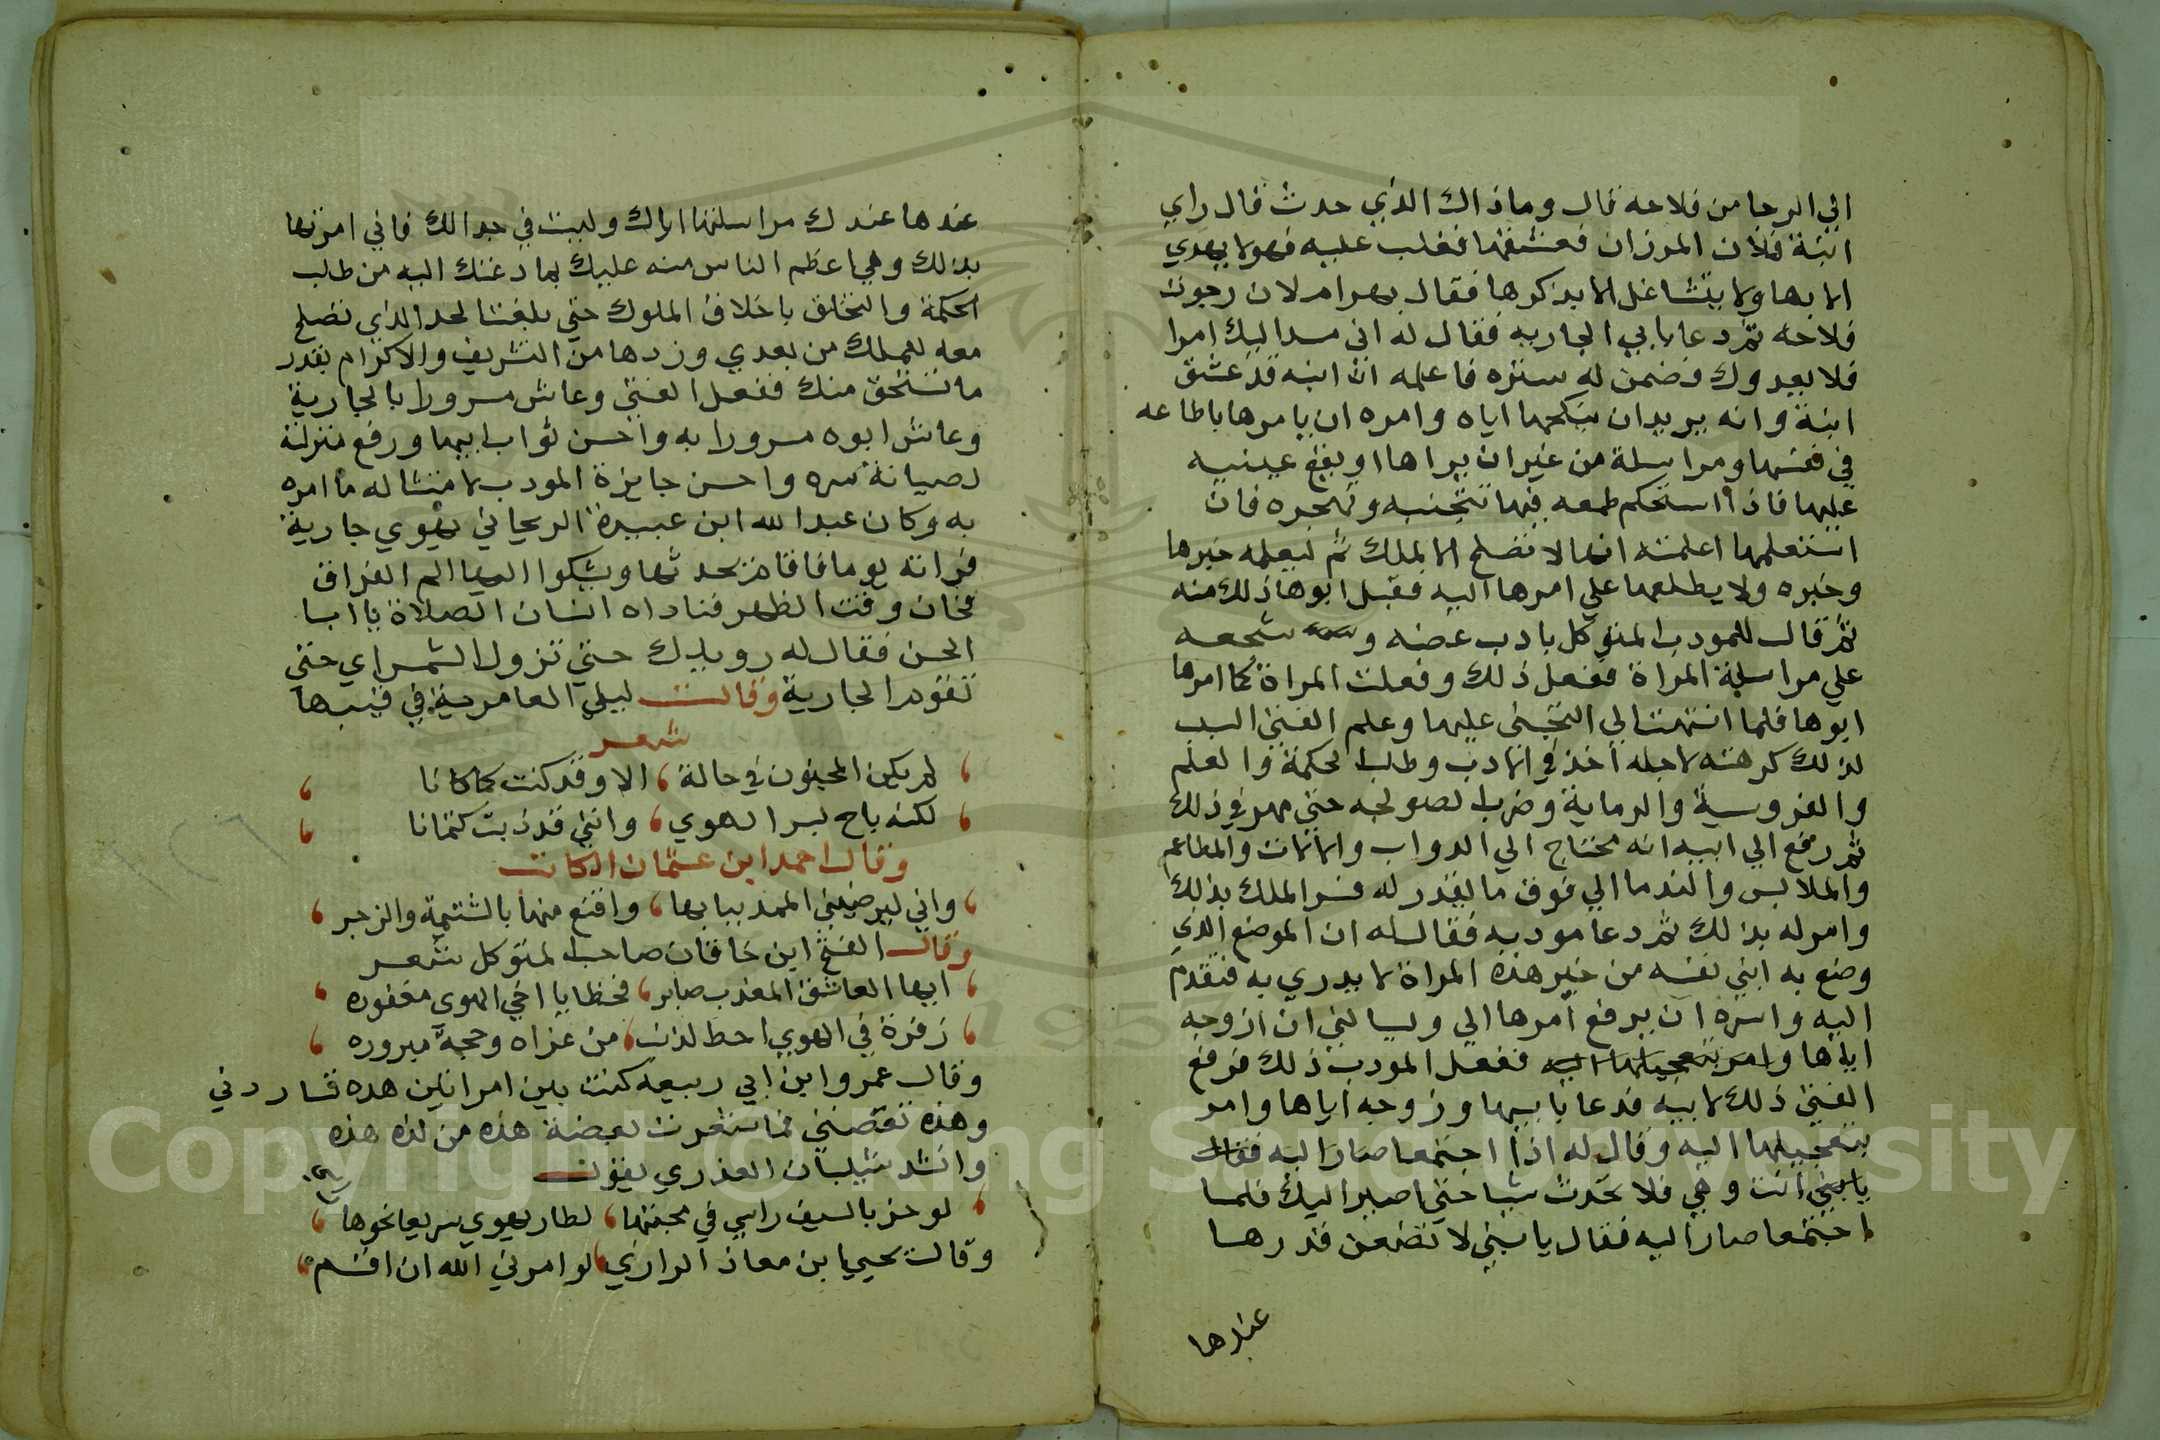 الي الرجا من فلاحه قال وماذاك الذي حدث قال راي
ابنة فلان المرزان فعشقها فغلب عليه فهو لا يهذي
الا بها ولا يتشاغل الا بذكرها فقال بهرام لان رجوت
فلاحه ثم دعا بابي الجاريه فقال له اني مسر اليك امرا
فلا يعدوك فضمن له ستره فاعلمه ان ابنه قد عشق
ابنة وانه يريد ان ينكحها اياه وامره ان يامرها باطماعه
في نفسها ومراسلة من غير ان يراها او يقع عينيه
عليها فاذا استحكم طمعه فيها تتجنبه وتهجره فان
استعلمها اعلمته انها لا تصلح الا بملك ثم ليعلمه خبرها
وخبره ولا يطلعها علي امرها اليه فقبل ابوها ذلك منه
ثم قال للمودب المتوكل بادب عضه و شجعه
علي مراسلة المراة ففعل ذلك وفعلت المراة كما امرها
ابوها فلما انتهت الي التجني عليها وعلم الفتي السبب
لذلك كرهته لاجله اخذ في الادب وطلب الحكمة والعلم
والفروسية والرماية وضرب الصولجه حتي مهر في ذلك
ثم رفع الي ابيه انه محتاج الي الدواب والالات والمطاعم
والملابس والندما الي فوق ما يقدر له فسر الملك بذلك
وامر له بذلك ثم دعا مودبه فقال له ان الموضع الذي
وضع به ابني نفسه من خبر هذه المراة لا يدري به فتقدم
اليه وامره ان يرفع امرها الي ويسالني ان ازوجه
اياها وامر بتعجيلها اليه ففعل المودب ذلك فرفع
الفتي ذلك لابيه فدعا بابيها وزوجه اياها وامر
بتعجيلها اليه وقال له اذا اجتمعا صارا اليه فقال
يابني انت وهي فلا تحدث شيا حتي اصير اليك فلما
اجتمعا صار اليه فقال يا بني لا تضعن قدرها
عندها
عندها عندك مراسلتها اياك وليست في حبالك فاني امرتها
بذلك وهي اعظم الناس منه عليك بما دعتك اليه من طلب
الحكمة والتخلق باخلاق الملوك حتي بلغت الحد الذي تصلح
معه للملك من بعدي وزدها من التشريف والاكرام بقدر
ما تستحق منك ففعل الفتي وعاش مسرورا بالجارية
وعاش ابوه مسرورا به واحسن ثواب ابيها ورفع منزلته
لصيانة سره واحسن جايزة المودب لامتثاله ما امره
به وكان عبد الله ابن عبيدة الريحاني يهوي جارية
فزارته يوما فاقام يحدثها ويشكوا اليها الم الفراق
فحان وقت الظهر فناداه انسان الصلاة يا ابا
الحسن فقال له رويدك حتي تزول الشمس اي حتي
تقوم الجارية وقالت ليلي العامرية في قيسها
شعر
لم يكن المجنون في حالة ، الا وقد كنت كما كانا
لكنه باح بسر الهوي ، وانني قد ذبت كتمانا
وقال احمد ابن عثمان الكاتب
واني ليرضيني الممر ببابها ، واقنع منها بالشتيمة والزجر
وقال الفتح ابن خاقان صاحب المتوكل شعر
ايها العاشق المعذب صابر ، فخطايا اخي الهوي مغفوره
زفرة في الهوي احط لذنب ، من غزاه وحجة مبروره
وقال عمرو ابن ابي ربيعه كنت بين امراتين هده تساررني
وهذه تعضني فما شعرت بعضة هذه من لذه هذه
وانشد شيبان العذري يقول
لو حز بالسيف راسي في محبتها ، لطار يهوي سريعا نحوها
وقالت يحييا بن معاذ الرازي لو امرني الله ان اقسم